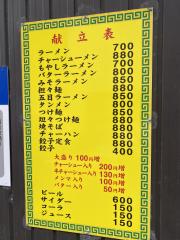 献立表
ラーメン 700
チャーシューメン 880
もやしラーメン 800
バターラーメン 800
みそラーメン 800
担々麺 850
五目ラーメン 880
タンメン 850
つけ麺 850
坦々つけ麺 880
焼そば 850
チャーハン 850
餃子定食 800
餃子 400
大盛り 100円増
チャーシュー入り 200円増
半チャーシュー入り 130円増
メンマ入り 100円増
バター入り 50円増
ビール
サイダー 600
コーラ 150
ジュース 150
150